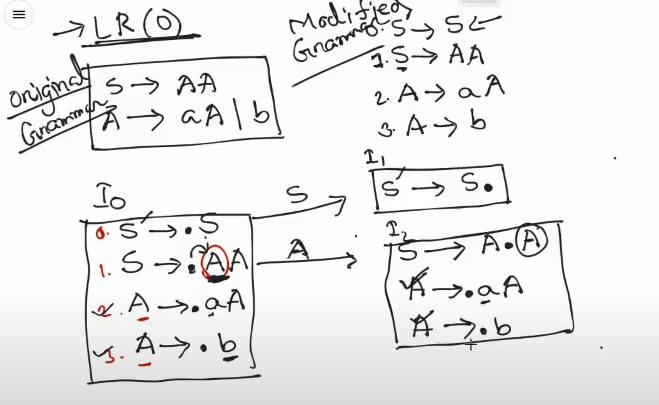 → LR(0)
Original Grammar
S → AA
A → aA | b
Modified Grammar
0. S' → S
1. S → AA
2. A → aA
3. A → b
I0
0. S' → .S
1. S → .AA
2. A → .aA
3. A → .b
S
A
I1
S' → S.
I2
S → A.A
A → .aA
A → .b